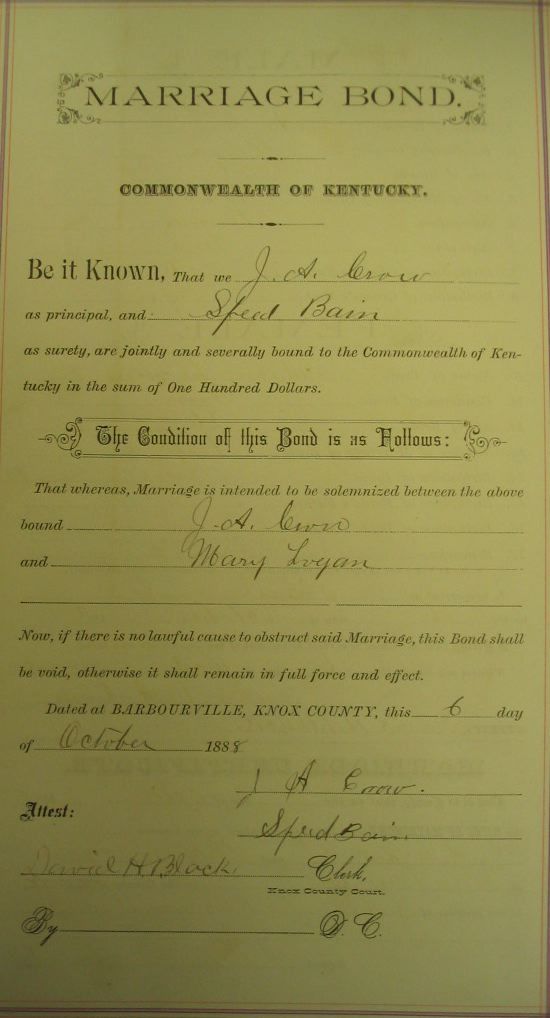 MARRIAGE BOND.
COMMONWEALTH OF KENTUCKY.
Be it Known, That we J. A. Crow
as principal, and Speed Bain
as surety, are jointly and severally bound to the Commonwealth of Ken-
tucky in the sum of One Hundred Dollars.
The Condition of this Bond is as Follows:
That whereas, Marriage is intended to be solemnized between the above
bound J. A. Crow
and Mary Logan
Now, if there is no lawful cause to obstruct said Marriage, this Bond shall
be void, otherwise it shall remain in full force and effect.
Dated at BARBOURVILLE, KNOX COUNTY, this 6 day
of October 1888
J A Crow.
Attest:
Speed Bain
David H. Black, Clerk,
Knox County Court.
By D. C.